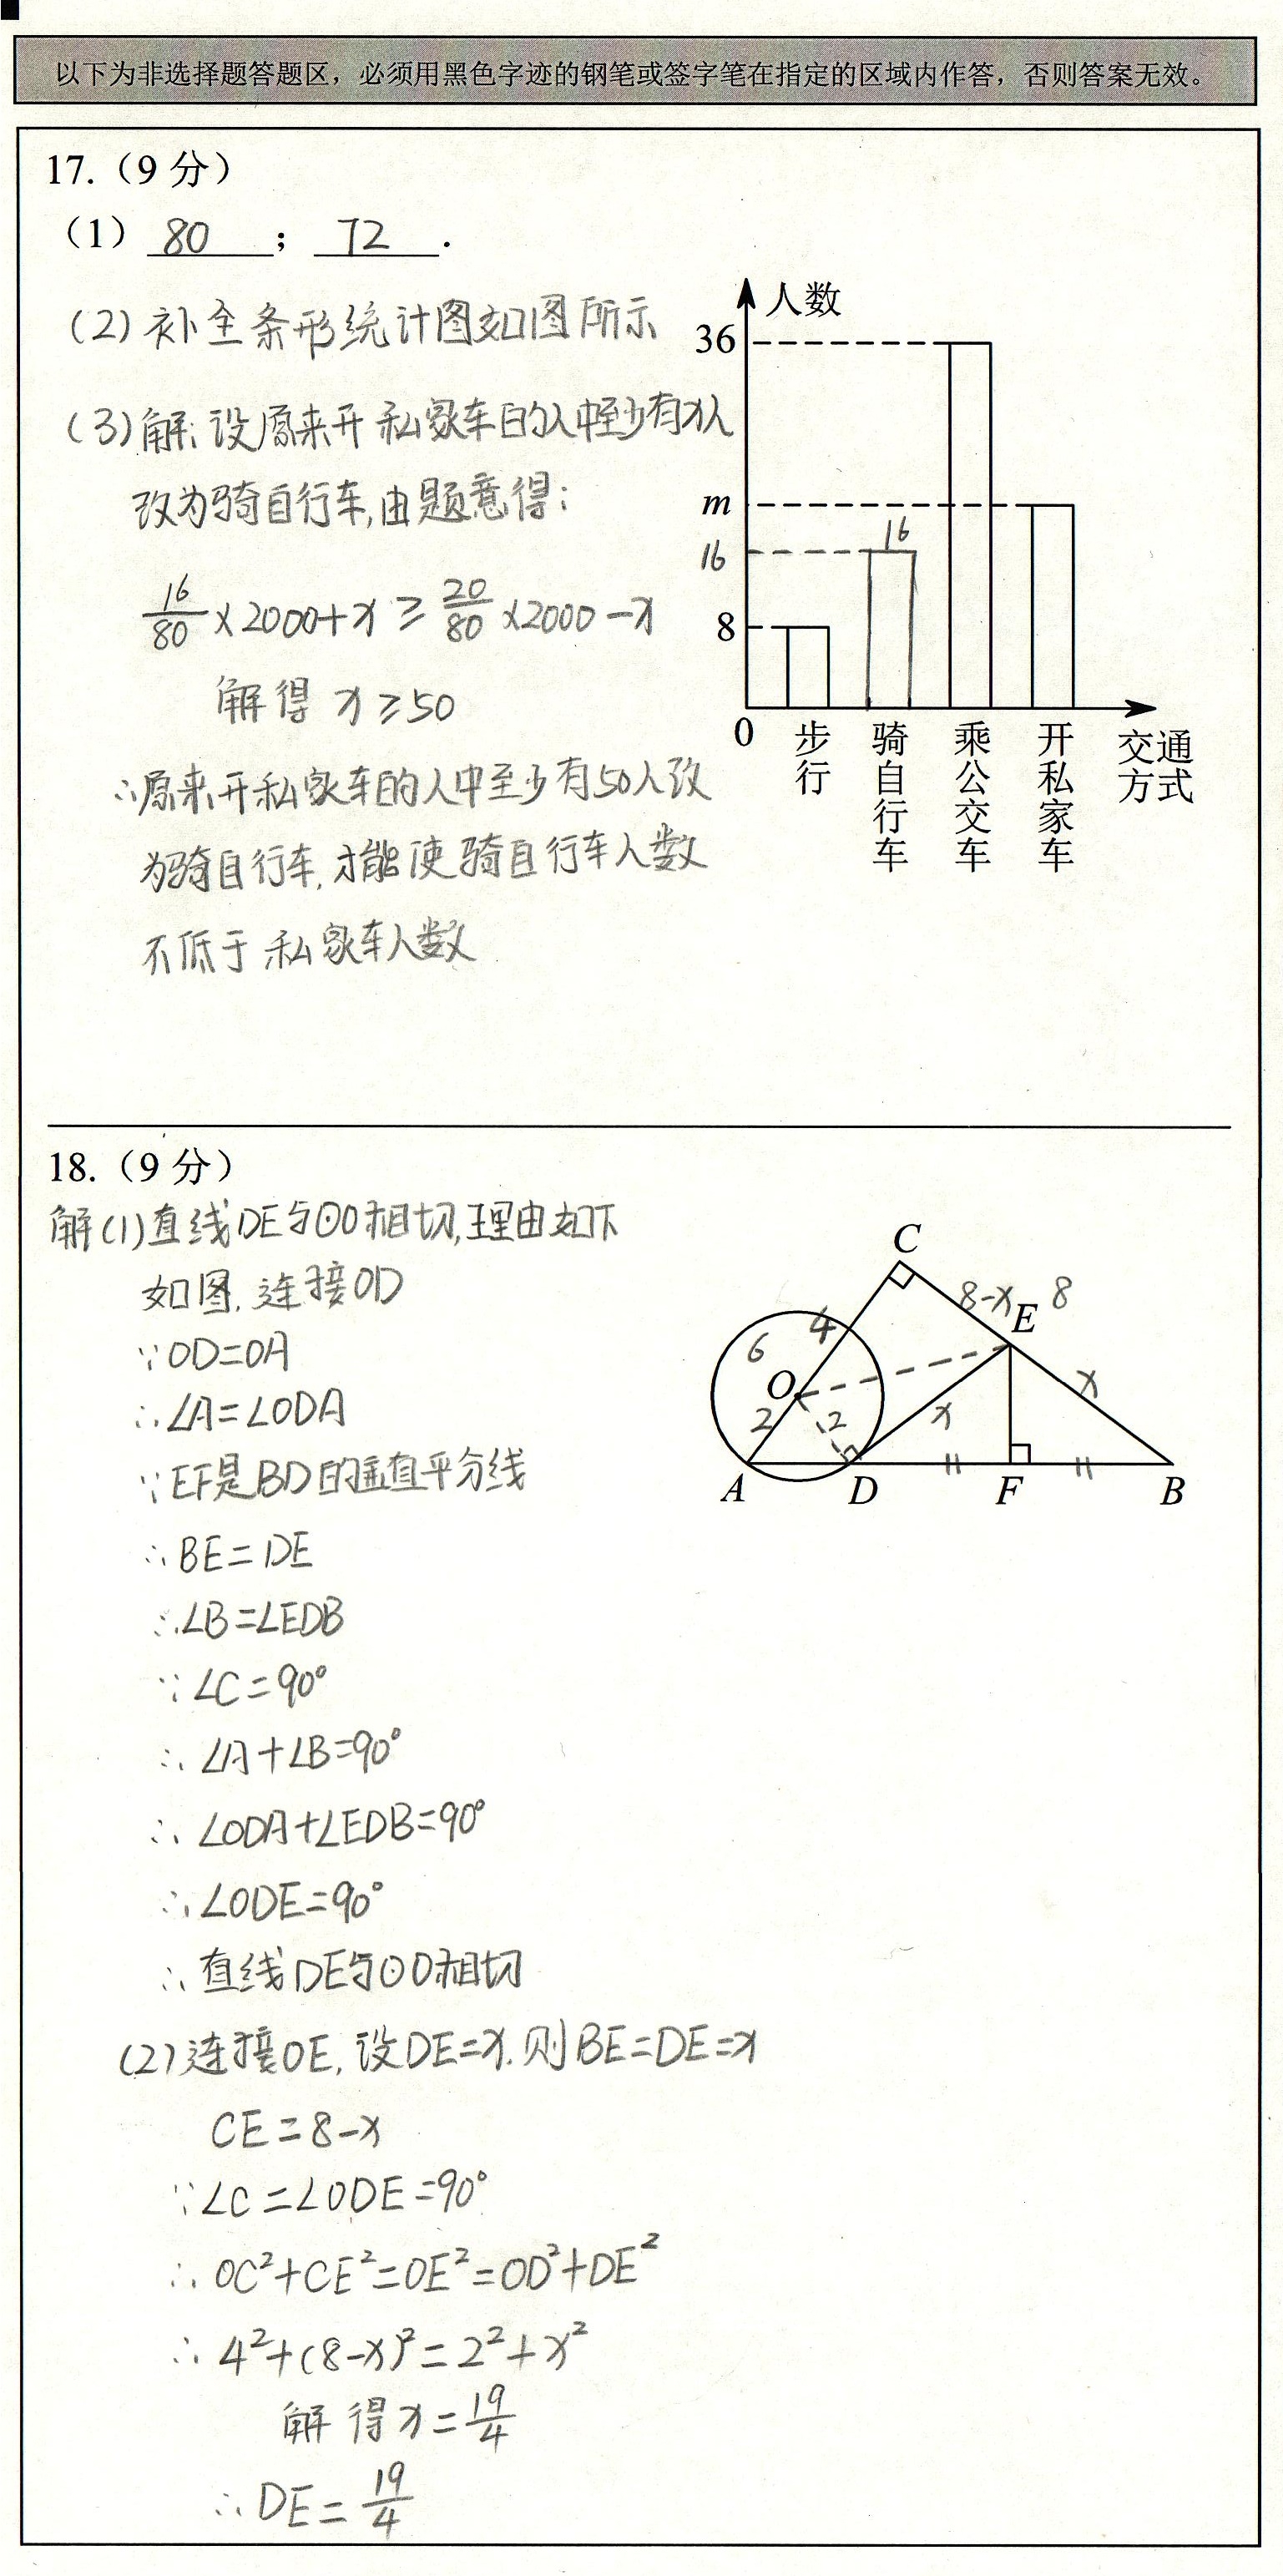 以下为非选择题答题区，必须用黑色字迹的钢笔或签字笔在指定的区域内作答，否则答案无效。
17.（9 分）
（1） 80 ； 72 .
(2) 补全条形统计图如图所示
(3) 解: 设原来开私家车的人中至少有x人
改为骑自行车,由题意得:
16/80 ×2000+x ≥ 20/80 ×2000-x
解得 x≥50
∴原来开私家车的人中至少有50人改
为骑自行车,才能使骑自行车人数
不低于私家车人数
人数
36
m
16
16
8
0
步行
骑自行车
乘公交车
开私家车
交通方式
18.（9 分）
解(1)直线DE与⊙O相切,理由如下
如图,连接OD
∵OD=OA
∴∠A=∠ODA
∵EF是BD的垂直平分线
∴BE=DE
∴∠B=∠EDB
∵∠C=90°
∴∠A+∠B=90°
∴∠ODA+∠EDB=90°
∴∠ODE=90°
∴直线DE与⊙O相切
(2)连接OE,设DE=x.则BE=DE=x
CE=8-x
∵∠C=∠ODE=90°
∴OC²+CE²=OE²=OD²+DE²
∴4²+(8-x)²=2²+x²
解得x=19/4
∴DE=19/4
C
8-x
8
E
6
4
O
x
2
2
x
A
D
F
B